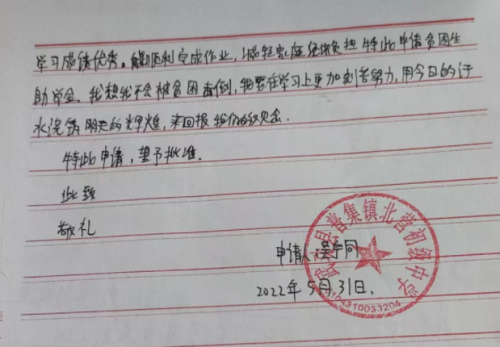 学习成绩优秀。能顺利完成作业,减轻家庭经济负担 特此申请贫困生
助学金。我想我不会被贫困击倒,我要在学习上更加刻苦努力,用今日的汗
水浇铸明天的辉煌,来回报
特此申请,望予批准.
此致
敬礼
集镇北营初级中学
申请人
2022年5月31日.